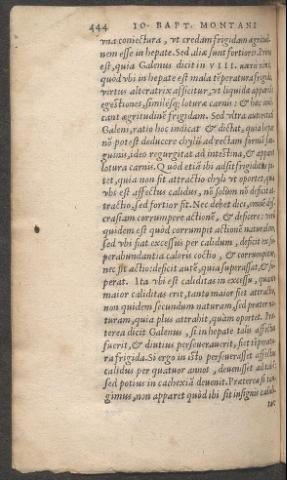 444 IO. BAPT. MONTANI
vna coniectura, vt credam frigidam ægritudi
nem esse in hepate. Sed aliæ sunt fortiores. Prima
est, quia Galenus dicit in VIII.
quòd vbi in hepate est mala temperatura frigida,
virtus alteratrix afficitur, vt liquida appareāt
egestiones, similesq́; loturæ carnis: & hæc indi-
cant ægritudinē frigidam. Sed vltra autoritatē
Galeni, ratio hoc indicat & dictat, quia hepar
nō potest deducere chylū ad rectam formā san
guinis, ideo regurgitat ad intestina, & apparet
lotura carnis. Quòd etiā ibi adsit frigidum pa
tet, quia non sit attractio chyli vt oportet, quia
vbi est affectus calidus, nō solum nō deficit at
tractio, sed fortior fit. Nec debet dici, omnē dys
crasiam corrumpere actionē, & deficere: nisi
quidem est quòd corrumpit actionē naturalem,
sed vbi fiat excessus per calidum, deficit ex su
perabundantia caloris coctio, & corrumpitur,
nec fit actio: deficit autē, quia superassat, & su
perat. Ita vbi est caliditas in excessu, quanto
maior caliditas erit, tanto maior fiet attractio,
non quidem secundum naturam, sed præter na
turam, quia plus attrahit, quàm oportet. Præ
terea dicit Galenus, si in hepate talis affectus
fuerit, & diutius perseuauerit, fiet tēperatu
ra frigida. Si ergo in isto perseuerasset affectus
calidus per quatuor annos, deuenisset ad
sed potius in cachexiā deuenit. Præterea si tan
gimus, non apparet quòd ibi sit insignis calidi
ta: